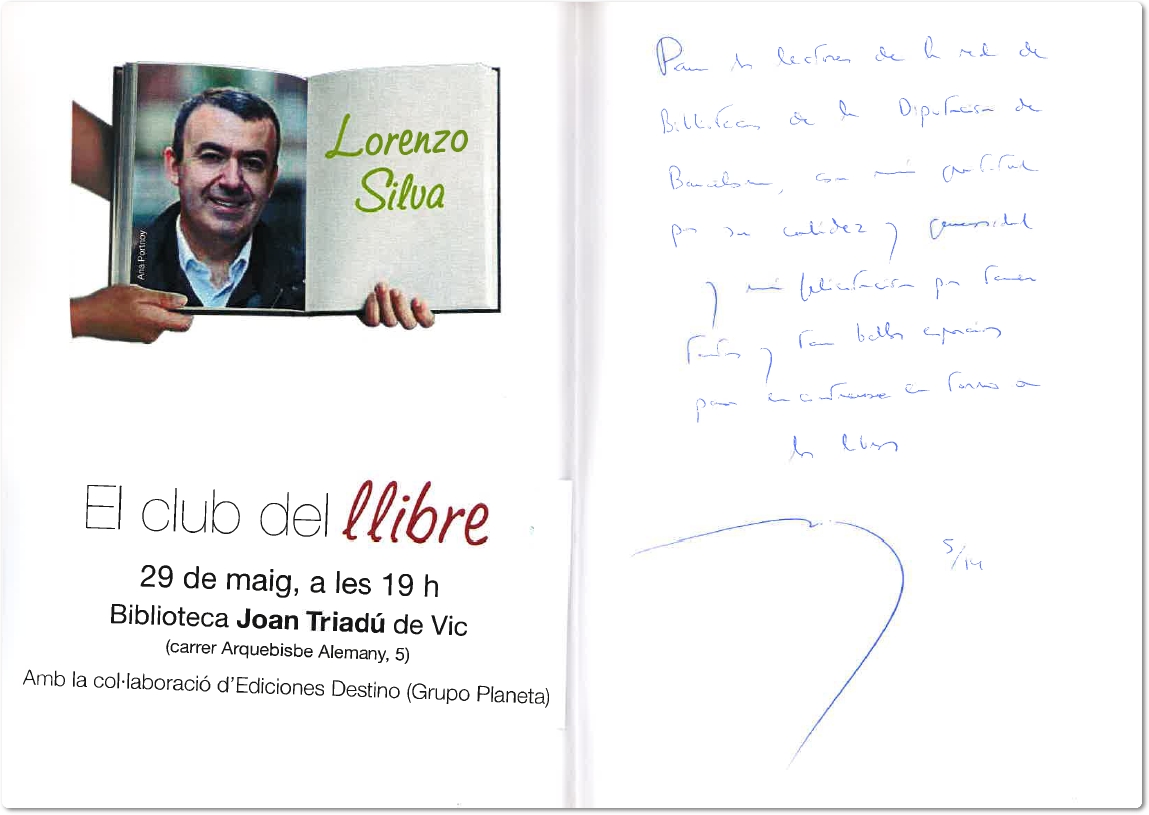 Lorenzo
Silva
Ana Portnoy
El club del llibre
29 de maig, a les 19 h
Biblioteca Joan Triadú de Vic
(carrer Arquebisbe Alemany, 5)
Amb la col·laboració d'Ediciones Destino (Grupo Planeta)
Para los lectores de la red de
Bibliotecas de la Diputación de
Barcelona, con mi gratitud
por su calidez y generosidad
y mi felicitación por tener
tantos y tan bellos espacios
para encontrarse en torno a
los libros
5/14